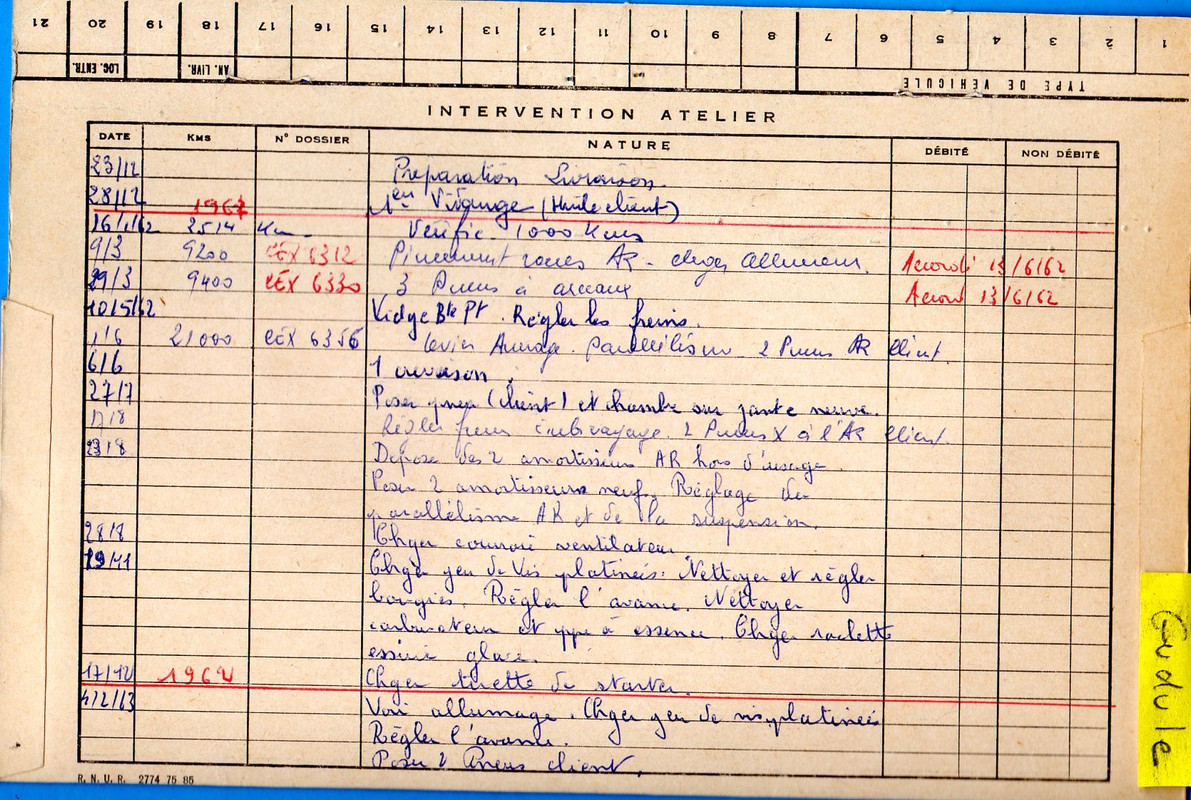 21 20 19 18 17 16 15 14 13 12 11 10 9 8 7 6 5 4 3 2 1
LOG. ENTR. AN. LIVR. TYPE DE VÉHICULE
INTERVENTION ATELIER
DATE KMS N° DOSSIER NATURE DÉBITÉ NON DÉBITÉ
23/12 Préparation Livraison
28/12 Vidange (Huile client)
16/1/62 2514 Km Vérific. 1000 Kms
9/3 9200 CEX 6312 Pincement roues AR - chger allumeur. 13/6/62
29/3 9400 CEX 6330 3 Pneus à arceaux 13/6/62
10/5/62 Vidge Bte Pt. Régler les freins.
1/6 21000 CEX 6356 2 Pneus AR client
6/6 1
27/7 Poser pneu (client) et chambre sur jante neuve.
Régler freins 2 Pneus X à l'AR client.
23/8 Dépose des 2 amortisseurs AR hors d'usage
Poser 2 amortisseurs neufs. Réglage du
parallélisme AR et de la suspension.
28/8 Chger courroie ventilateur
19/11 Chger jeu de Vis platinées. Nettoyer et régler
bougies. Régler l'avance. Nettoyer
carburateur et ppe à essence. Chger raclette
essuie glace.
17/12 1962 Chger tirette de starter.
4/2/63 Voir allumage. Chger jeu de vis platinées
Régler l'avance.
Poser 2 Pneus client.
R. N. U. R. 2774 75 85
Gudule